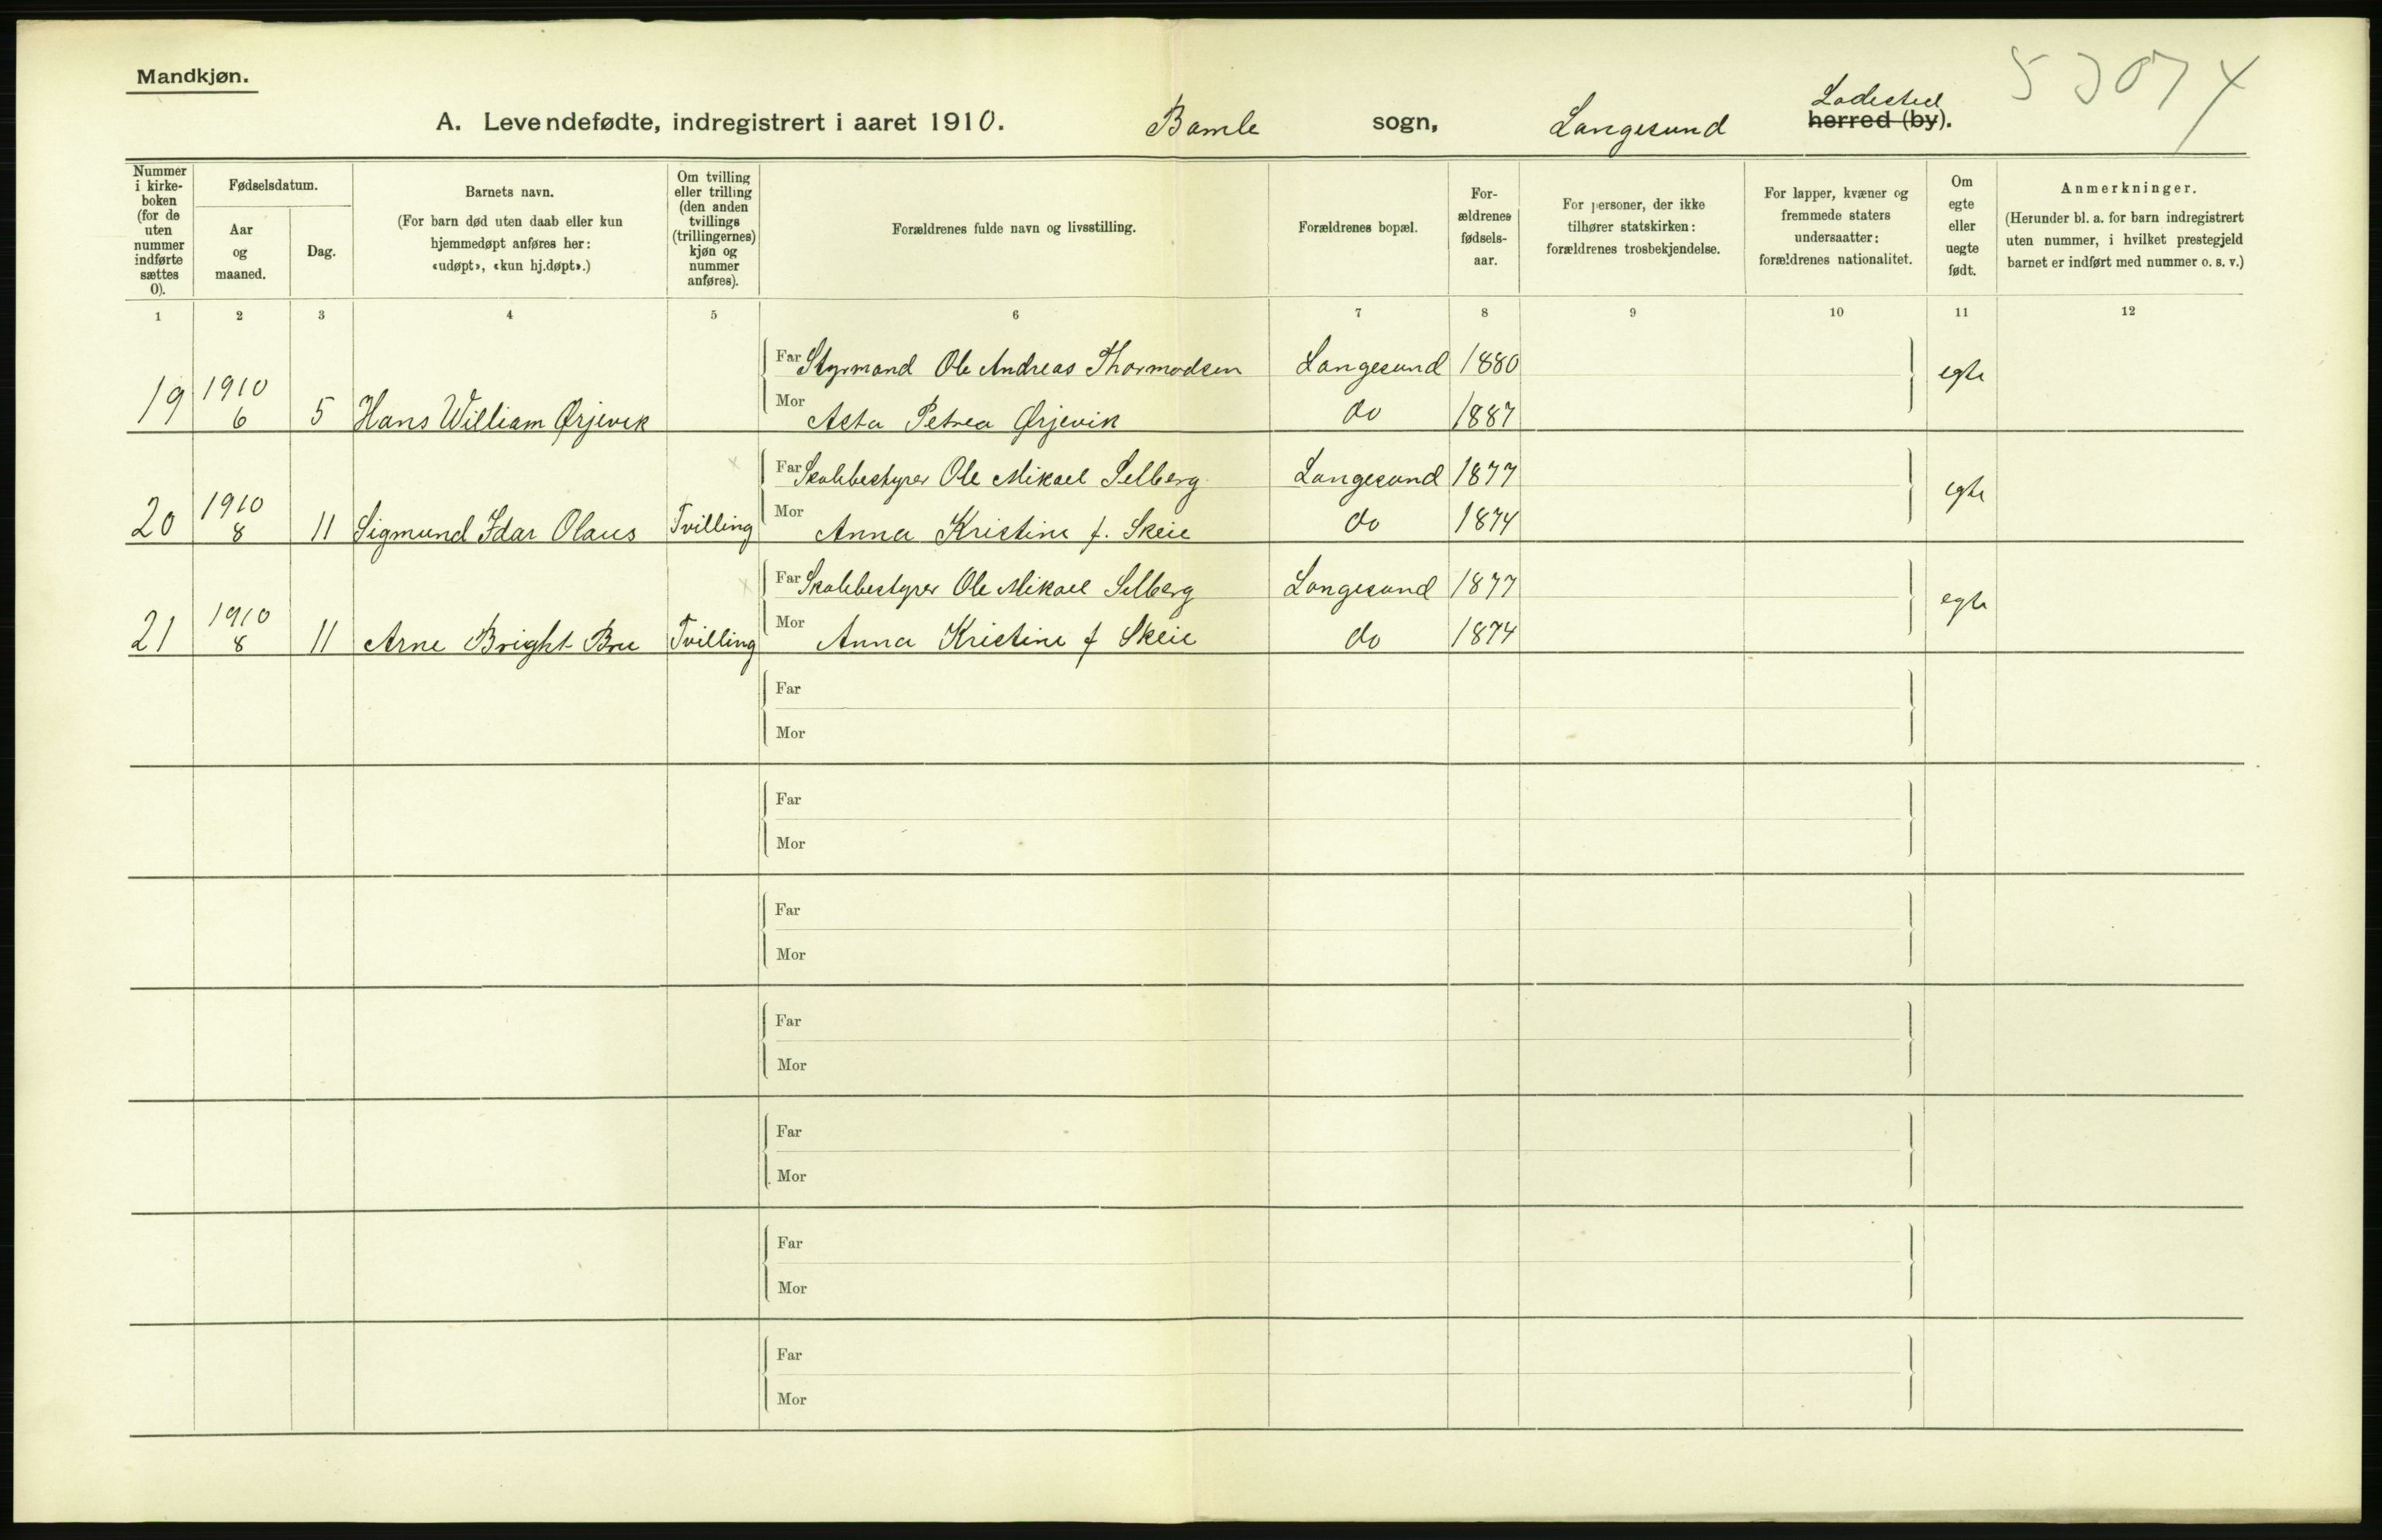 Mandkjøn.
A. Levendefødte, indregistrert i aaret 1910. Bamle sogn, Langesund Ladested herred (by).
Nummer i kirke-boken (for de uten nummer indførte sættes 0).
Fødselsdatum.
Aar og maaned.
Dag.
Barnets navn.
(For barn død uten daab eller kun hjemmedøpt anføres her: «udøpt», «kun hj.døpt».)
Om tvilling eller trilling (den anden tvillings (trillingernes) kjøn og nummer anføres).
Forældrenes fulde navn og livsstilling.
Forældrenes bopæl.
For-ældrenes fødsels-aar.
For personer, der ikke tilhører statskirken: forældrenes trosbekjendelse.
For lapper, kvæner og fremmede staters undersaatter: forældrenes nationalitet.
Om egte eller uegte født.
Anmerkninger.
(Herunder bl. a. for barn indregistrert uten nummer, i hvilket prestegjeld barnet er indført med nummer o. s. v.)
1 2 3 4 5 6 7 8 9 10 11 12
Far Styrmand Ole Andreas Thormodsen Langesund 1880
19 1910 6 5 Hans William Ørjevik Mor Asta Petrea Ørjevik do 1887 egte
Far Skolebestyrer Ole Mikael Selberg Langesund 1877
20 1910 8 11 Sigmund Idar Olaus Tvilling Mor Anna Kristine f. Skeie do 1874 egte
Far Skolebestyrer Ole Mikael Selberg Langesund 1877
21 1910 8 11 Arne Bright Bru Tvilling Mor Anna Kristine f Skeie do 1874 egte
Far
Mor
Far
Mor
Far
Mor
Far
Mor
Far
Mor
Far
Mor
Far
Mor